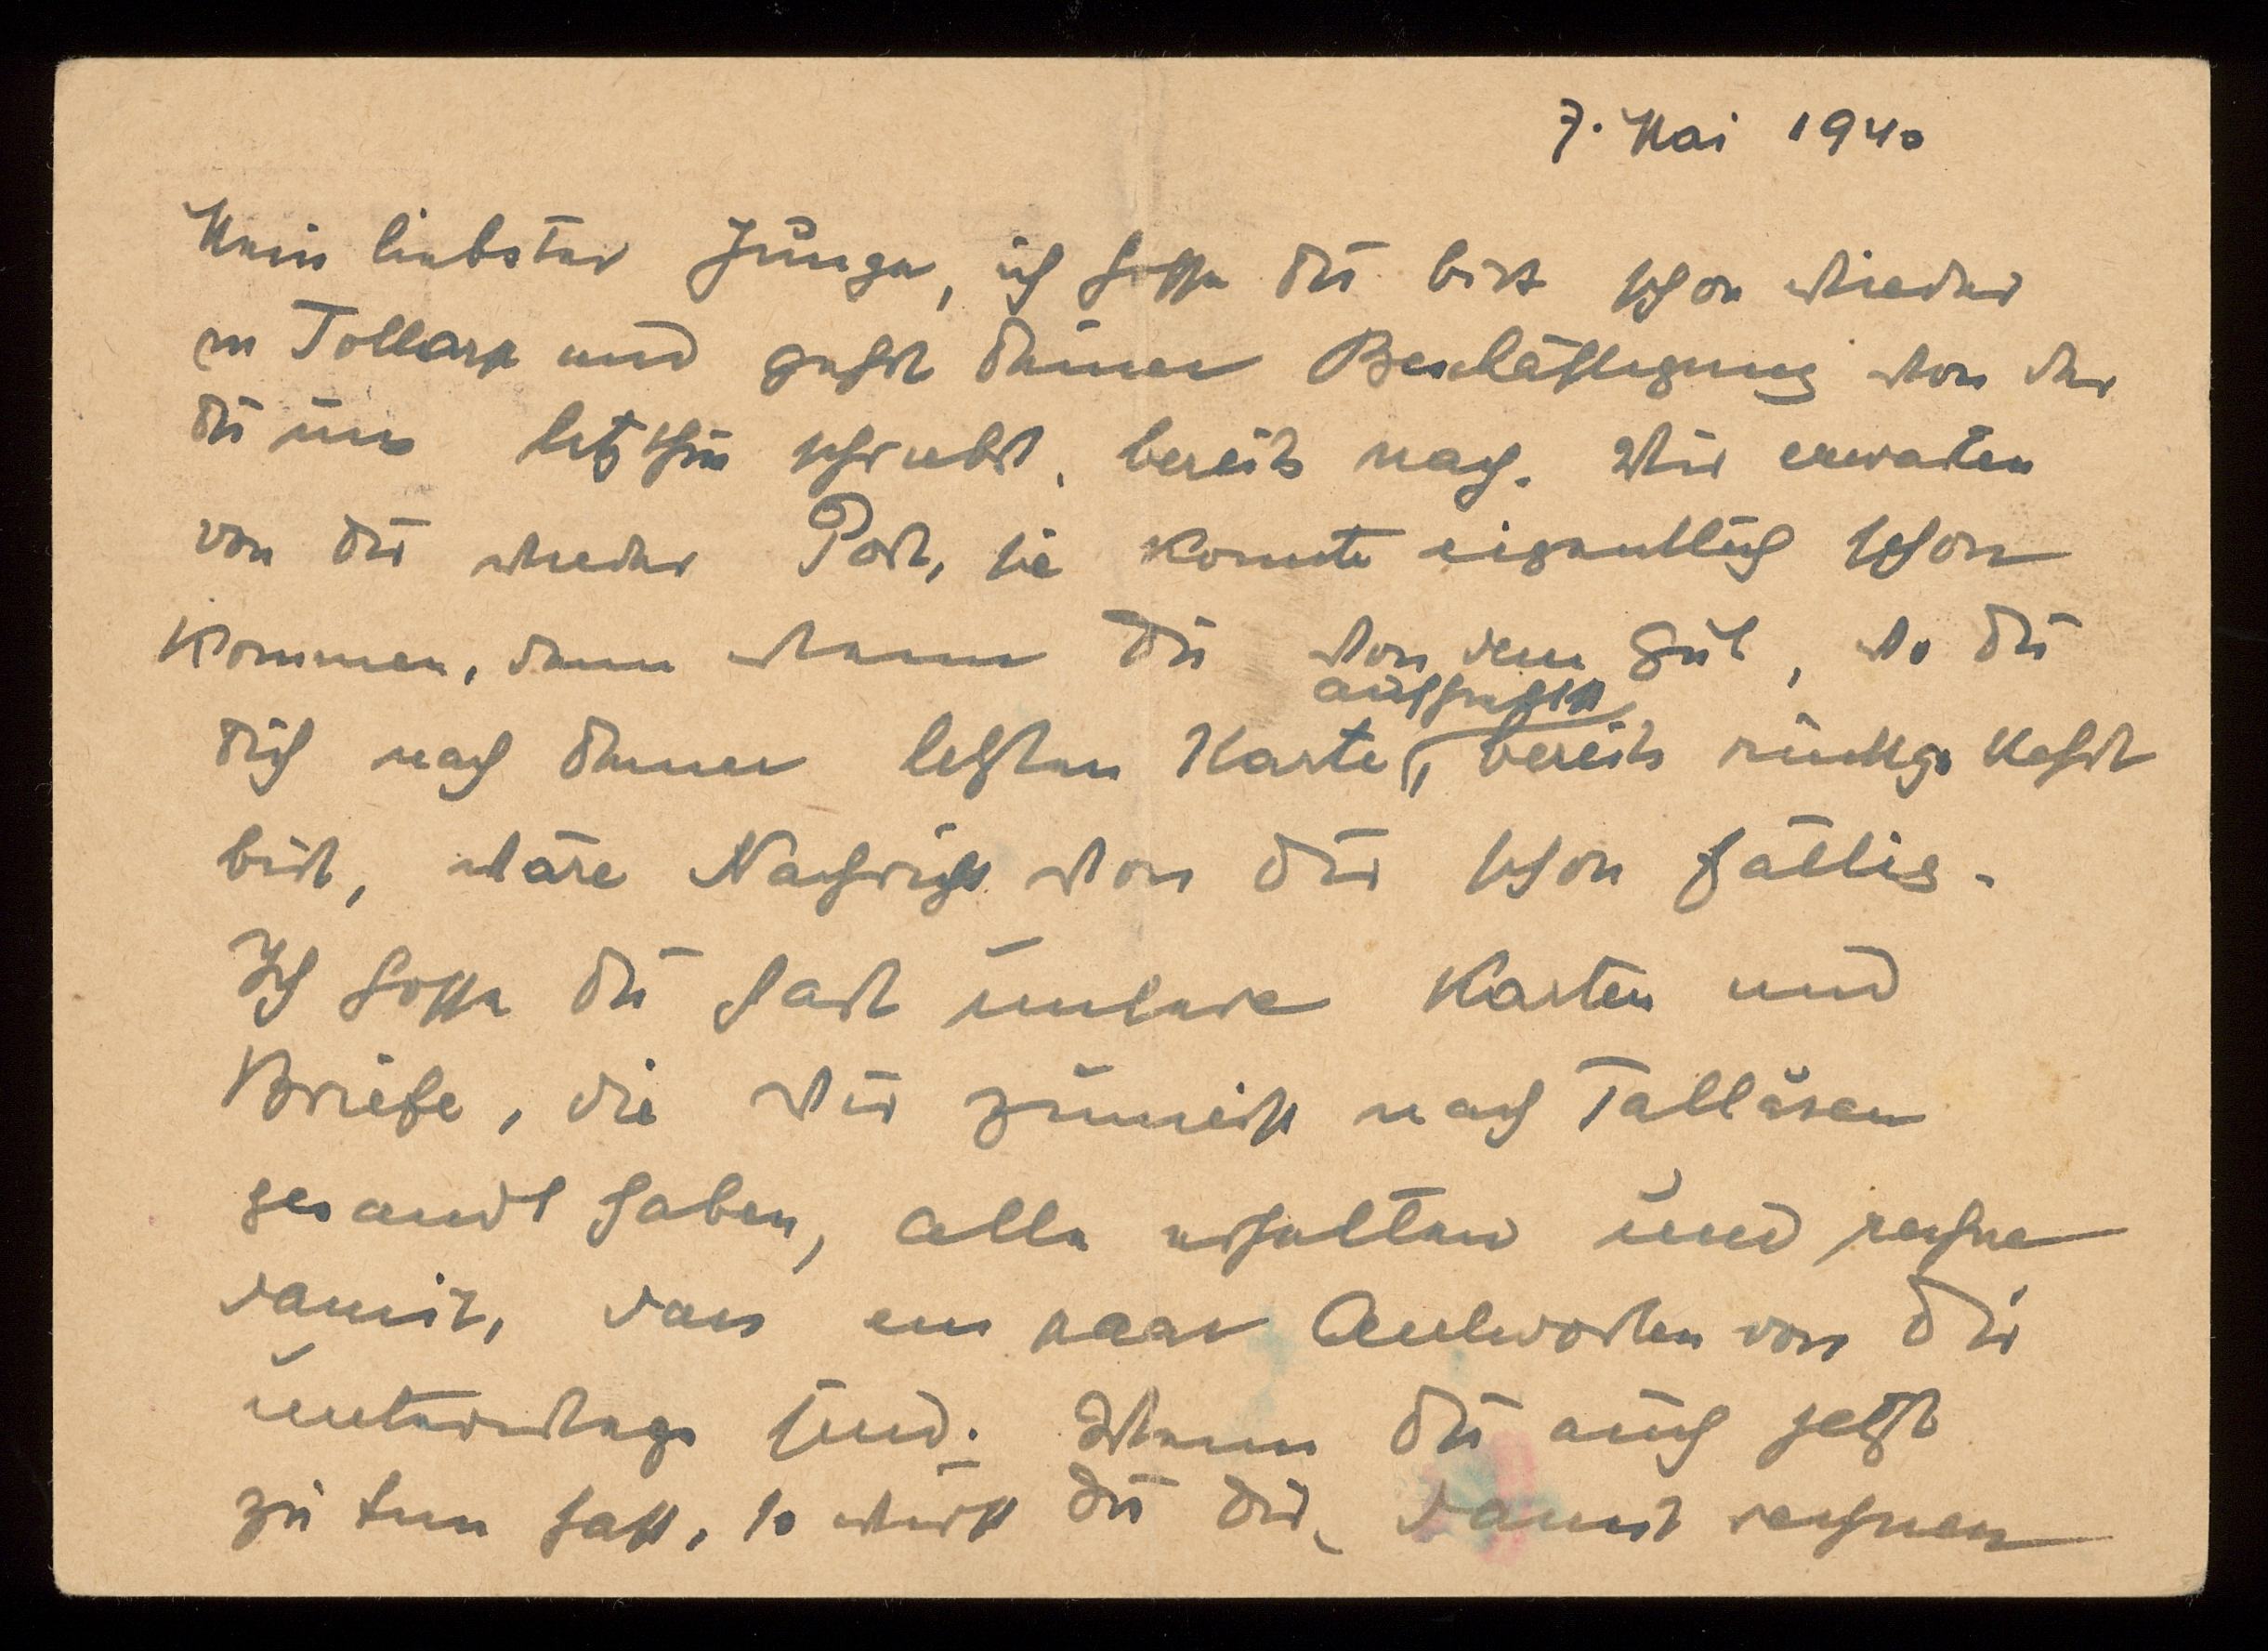 7. Mai 1940
Mein liebster Junge, ich hoffe du bist schon wieder
in Tollarp und gehst deiner Beschäftigung von der
du uns letzthin schriebst, bereits nach. Wir erwarten
von dir wieder Post, sie konnte eigentlich schon
kommen, denn wenn du von dem Gut, wo du
aufhieltst
dich nach deiner letzten Karte, bereits rückgekehrt
bist, wäre Nachricht von dir schon fällig.
Ich hoffe du hast unsere Karten und
Briefe, die wir zumeist nach Tallåsen
gesandt haben, alle erhalten und rechne
damit, dass ein paar Antworten von dir
unterwegs sind. Wenn du auch jetzt
zu tun hast, so wirst du dir, damit rechnen